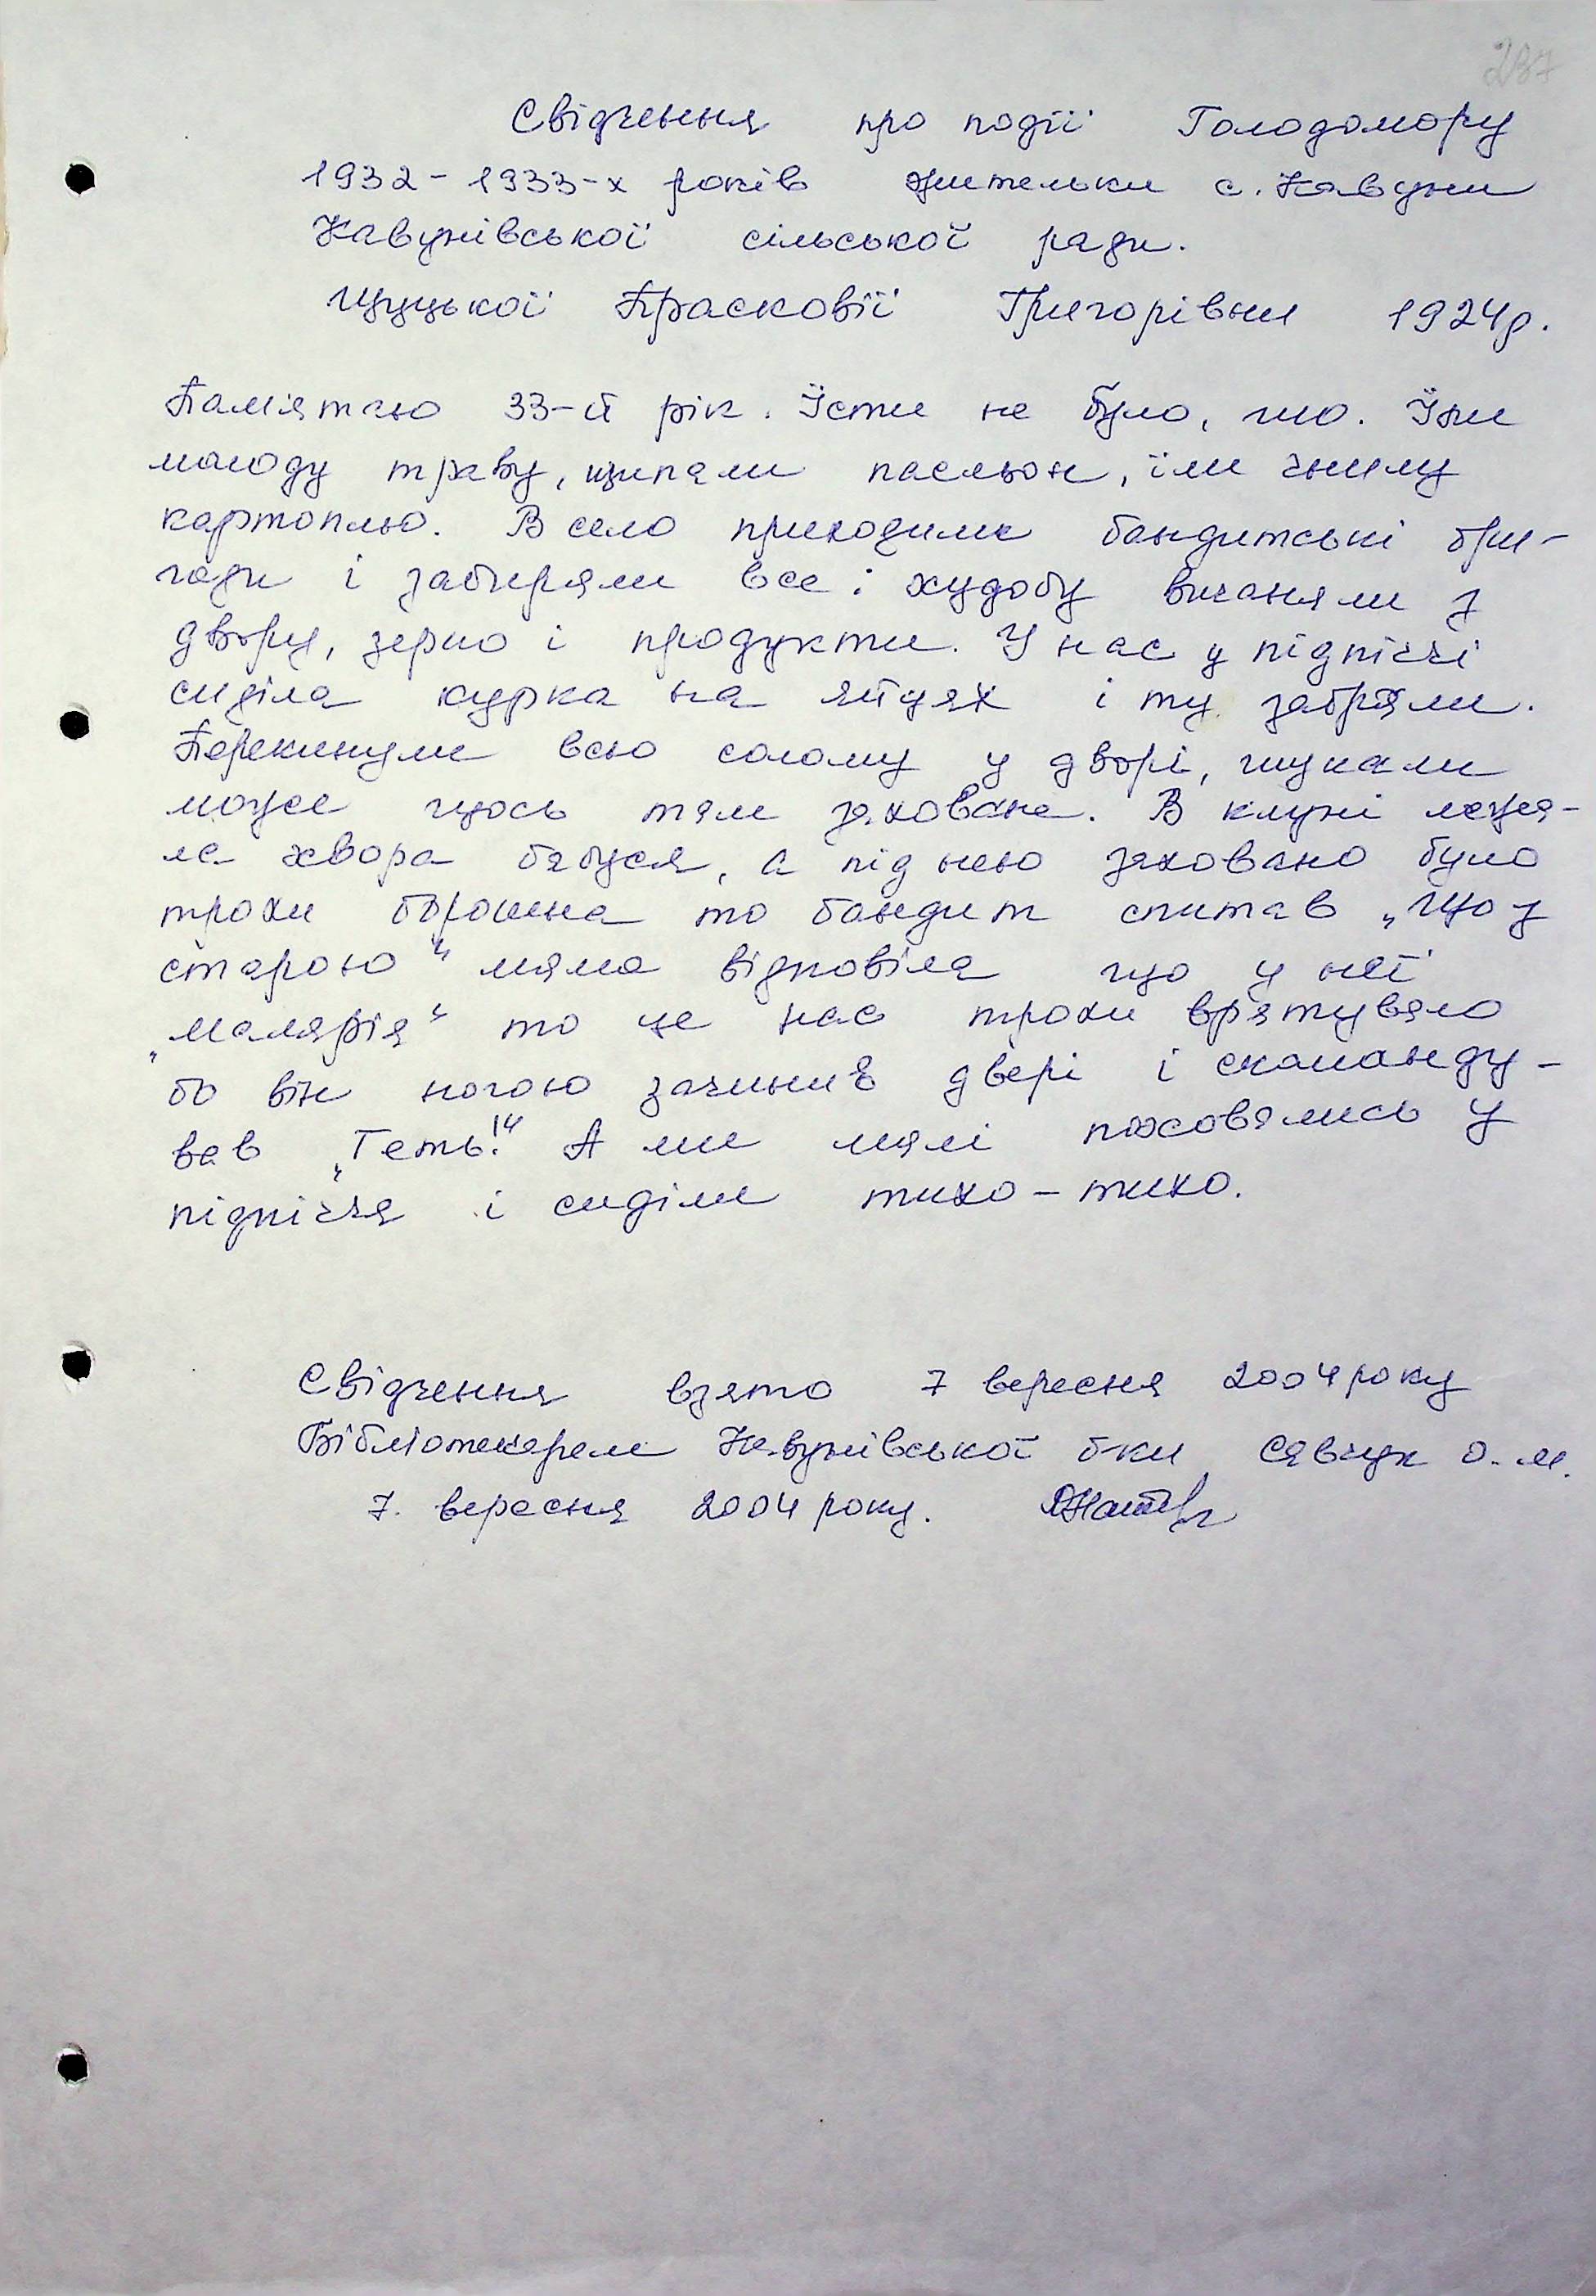 237
Свідчення про події Голодомору
1932-1933-х років жительки с. Кавуни
Кавунівської сільської ради.
Щуцької Прасковії Григорівни 1924р.
Памятаю 33-й рік. Їсти не було, що. Їли
молоду траву, щипали пасльон, їли гнилу
картоплю. В село приходили бандитські бри-
гади і забирали все: худобу виганяли з
двору, зерно і продукти. У нас у підпіччі
сиділа курка на яйцях і ту забрали.
Перекинули всю солому у дворі, шукали
може щось там заховане. В клуні лежа-
ла хвора бабуся, а під нею заховано було
трохи борошна то бандит спитав „Що з
старою" мама відповіла що у неї
„малярія" то це нас трохи врятувало
бо він ногою зачинив двері і скоманду-
вав „Геть!" А ми малі поховались у
підпіччя і сиділи тихо-тихо.
Свідчення взято 7 вересня 2004 року
Бібліотекарем Кавунівської б-ки Савчук О.М.
7. вересня 2004 року.